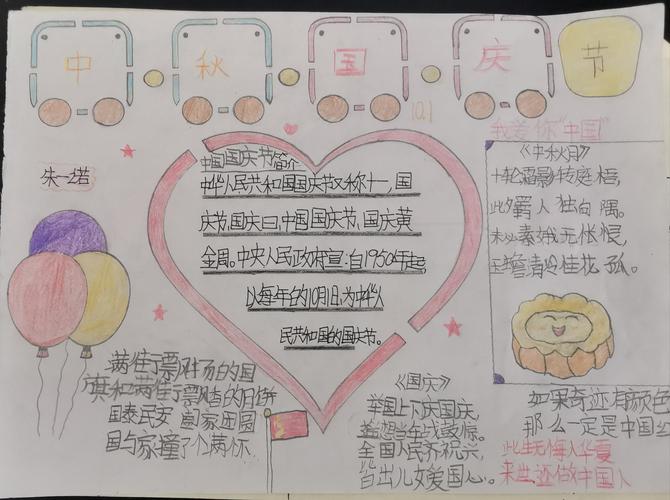 中 秋 国 庆 节
10.1
我爱你"中国"
朱一诺
中国国庆节简介
中华人民共和国国庆节又称十一,国
庆节,国庆日,中国国庆节,国庆黄
金周。中央人民政府宣:自1950年起,
以每年的10月1日,为中华人
民共和国的国庆节。
《中秋月》
十轮霜影转庭梧,
此夕羁人独向隅。
未必素娥无怅恨,
玉蟾清冷桂花孤。
满街了飘对场的国
旗和满街了飘香的月饼
国泰民安 阖家团圆
国与家撞了个满怀
《国庆》
举国上下庆国庆,
当年战鼓惊。
全国人民齐祝兴,
皆出儿女爱国心。
如果奇迹有颜色
那么一定是中国红
此生无悔入华夏
来世还做中国人